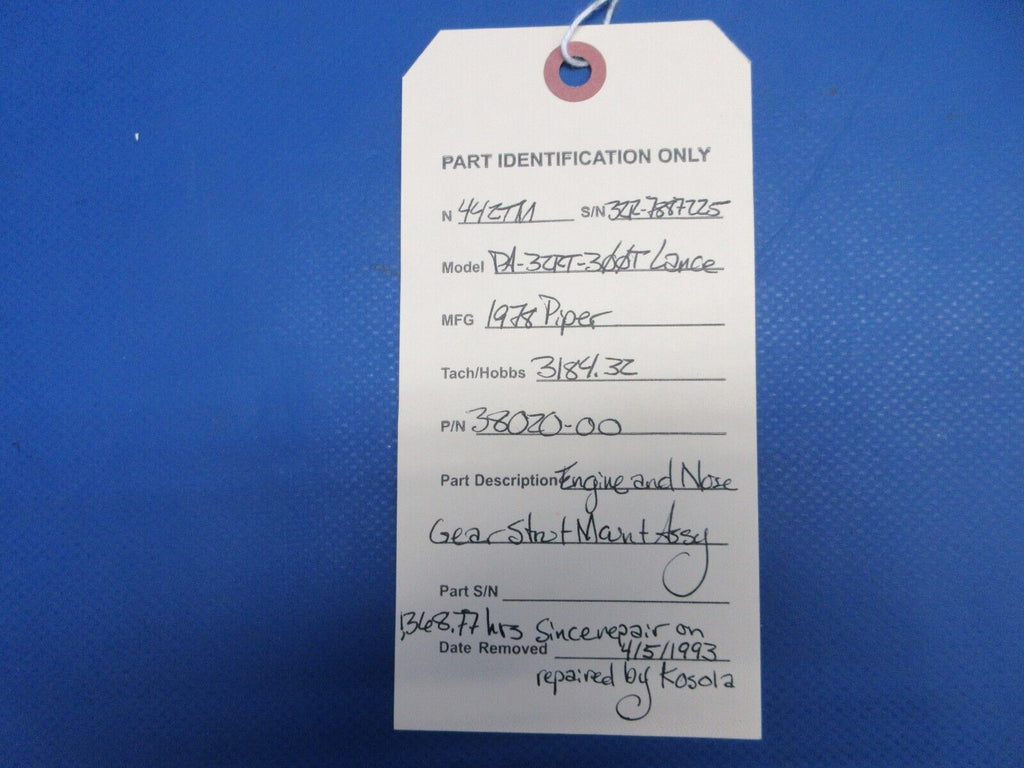 PART IDENTIFICATION ONLY
N 442TM S/N 32R-7887225
Model PA-32RT-300T Lance
MFG 1978 Piper
Tach/Hobbs 3184.32
P/N 38020-00
Part Description Engine and Nose
Gear Strut Mount Assy
Part S/N
1,368.77 hrs Since repair on
Date Removed 4/5/1993
repaired by Kosola